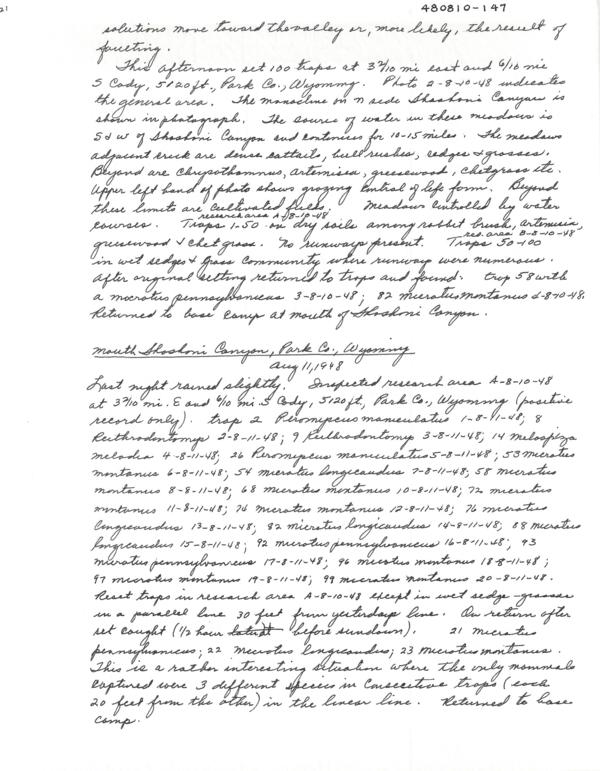 21
480810-147
solutions move toward the valley or, more likely, the result of
faulting.
This afternoon set 100 traps at 3 2/10 mi east and 6/10 mi
S Cody, 5120 ft., Park Co., Wyoming. Photo 2-8-10-48 indicates
the general area. The monocline on N side Shoshoni Canyon is
shown in photograph. The source of water in these meadows is
S & W of Shoshoni Canyon and continues for 10-15 miles. The meadows
adjacent creek are dense cattails, bullrushes, sedges & grasses.
Beyond are Chrysothamnus, artemisia, greesewood, chetgrass etc.
Upper left hand of photo shows grazing control of life form. Beyond
these limits are cultivated fields. Meadows controlled by water
research area A-8-10-48
courses. Traps 1-50 on dry soils among rabbit brush, artemisia,
res. area B-8-10-48,
greesewood & chet grass. No runways present. Traps 50-100
in wet sedges & grass community where runways were numerous.
After original setting returned to traps and found: trap 58 with
a microtus pennsylvanicus 3-8-10-48; 82 microtus montanus 4-8-10-48.
Returned to base camp at mouth of Shoshoni Canyon.
Mouth Shoshoni Canyon, Park Co., Wyoming
Aug 11, 1948
Last night rained slightly. Inspected research area A-8-10-48
at 3 2/10 mi. E and 6/10 mi S Cody, 5120 ft, Park Co., Wyoming (positive
record only). trap 2 Peromyscus maniculatus 1-8-11-48; 8
Reithrodontomys 2-8-11-48; 9 Reithrodontomys 3-8-11-48; 14 melospiza
melodia 4-8-11-48; 26 Peromyscus maniculatus 5-8-11-48; 53 microtus
montanus 6-8-11-48; 54 microtus longicaudus 7-8-11-48; 58 microtus
montanus 8-8-11-48; 68 microtus montanus 10-8-11-48; 72 microtus
montanus 11-8-11-48; 74 microtus montanus 12-8-11-48; 76 microtus
longicaudus 13-8-11-48; 82 microtus longicaudus 14-8-11-48; 88 microtus
longicaudus 15-8-11-48; 92 microtus pennsylvanicus 16-8-11-48; 93
microtus pennsylvanicus 17-8-11-48; 96 microtus montanus 18-8-11-48;
97 microtus montanus 19-8-11-48; 99 microtus montanus 20-8-11-48.
Reset traps in research area A-8-10-48 except in wet sedge-grasses
in a parallel line 30 feet from yesterdays line. On return after
set caught (1/2 hour before sundown). 21 microtus
pennsylvanicus; 22 microtus longicaudus; 23 microtus montanus.
This is a rather interesting situation where the only mammals
captured were 3 different species in consecutive traps (each
20 feet from the other) in the linear line. Returned to base
camp.